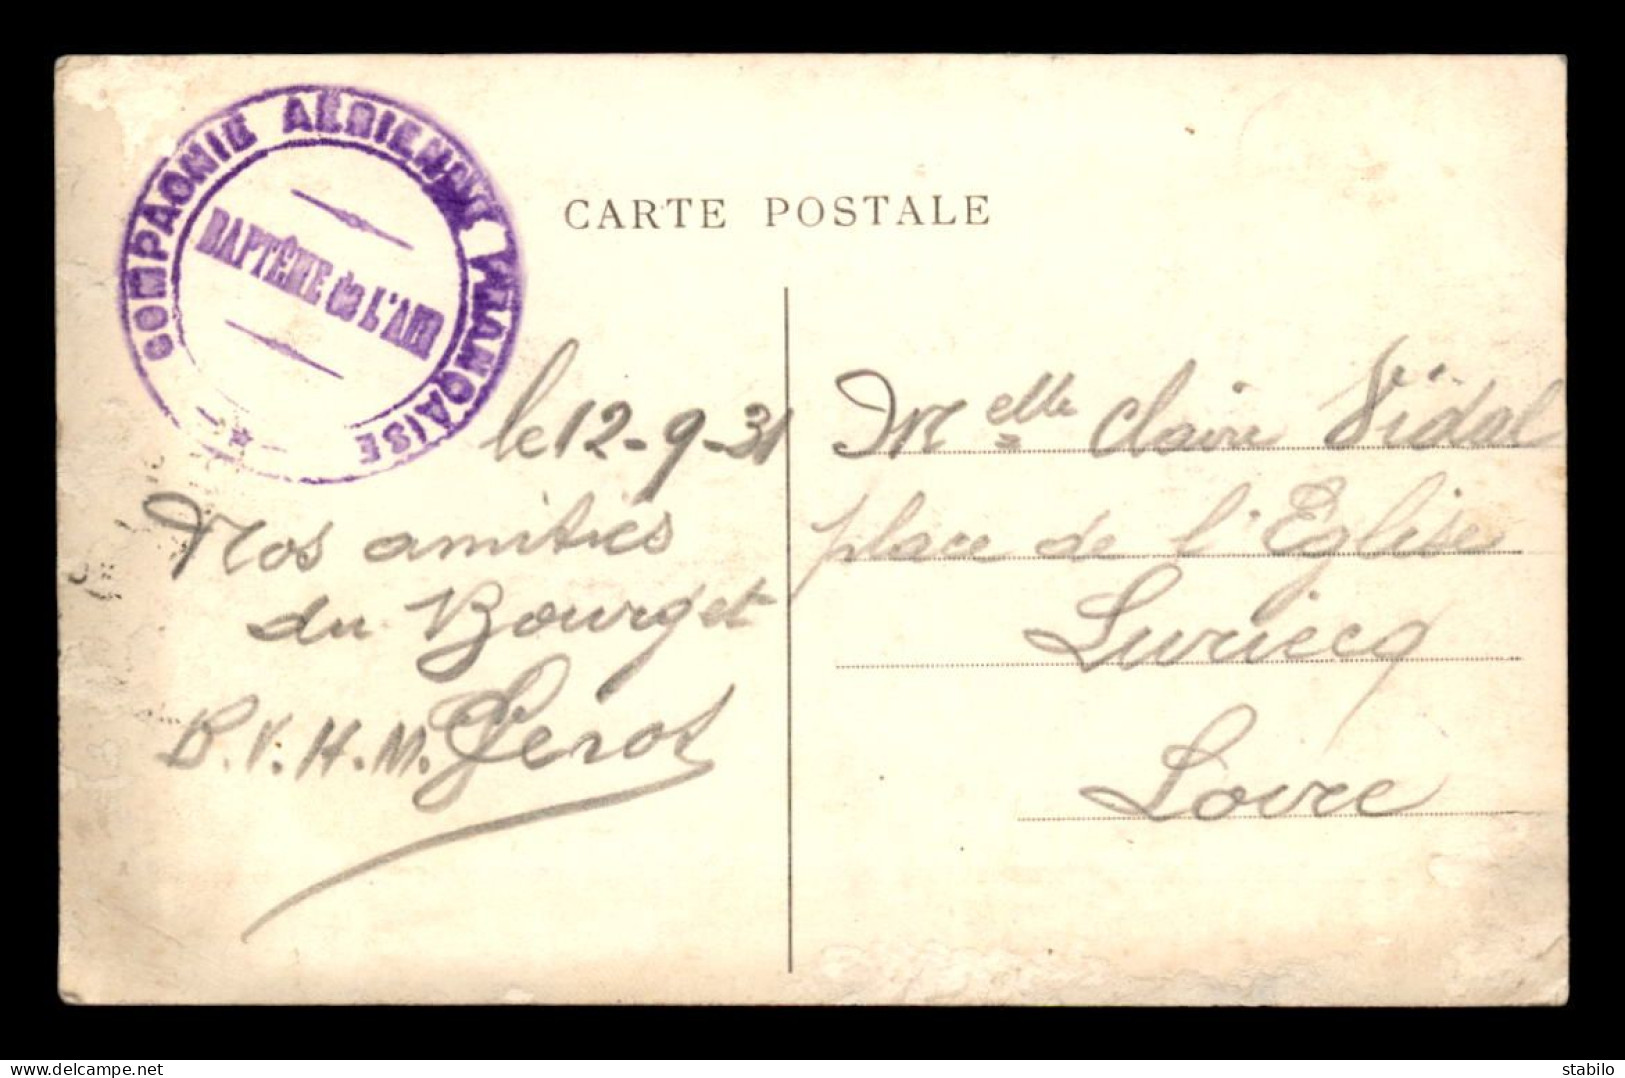 COMPAGNIE AÉRIENNE FRANÇAISE
BAPTÊME de L'AIR
CARTE POSTALE
le 12-9-31
Nos amitiés
du Bourget
B.V.H.M. Gerot
Melle Claire Vidal
place de l'Eglise
Luriecq
Loire
delcampe.net
stabilo